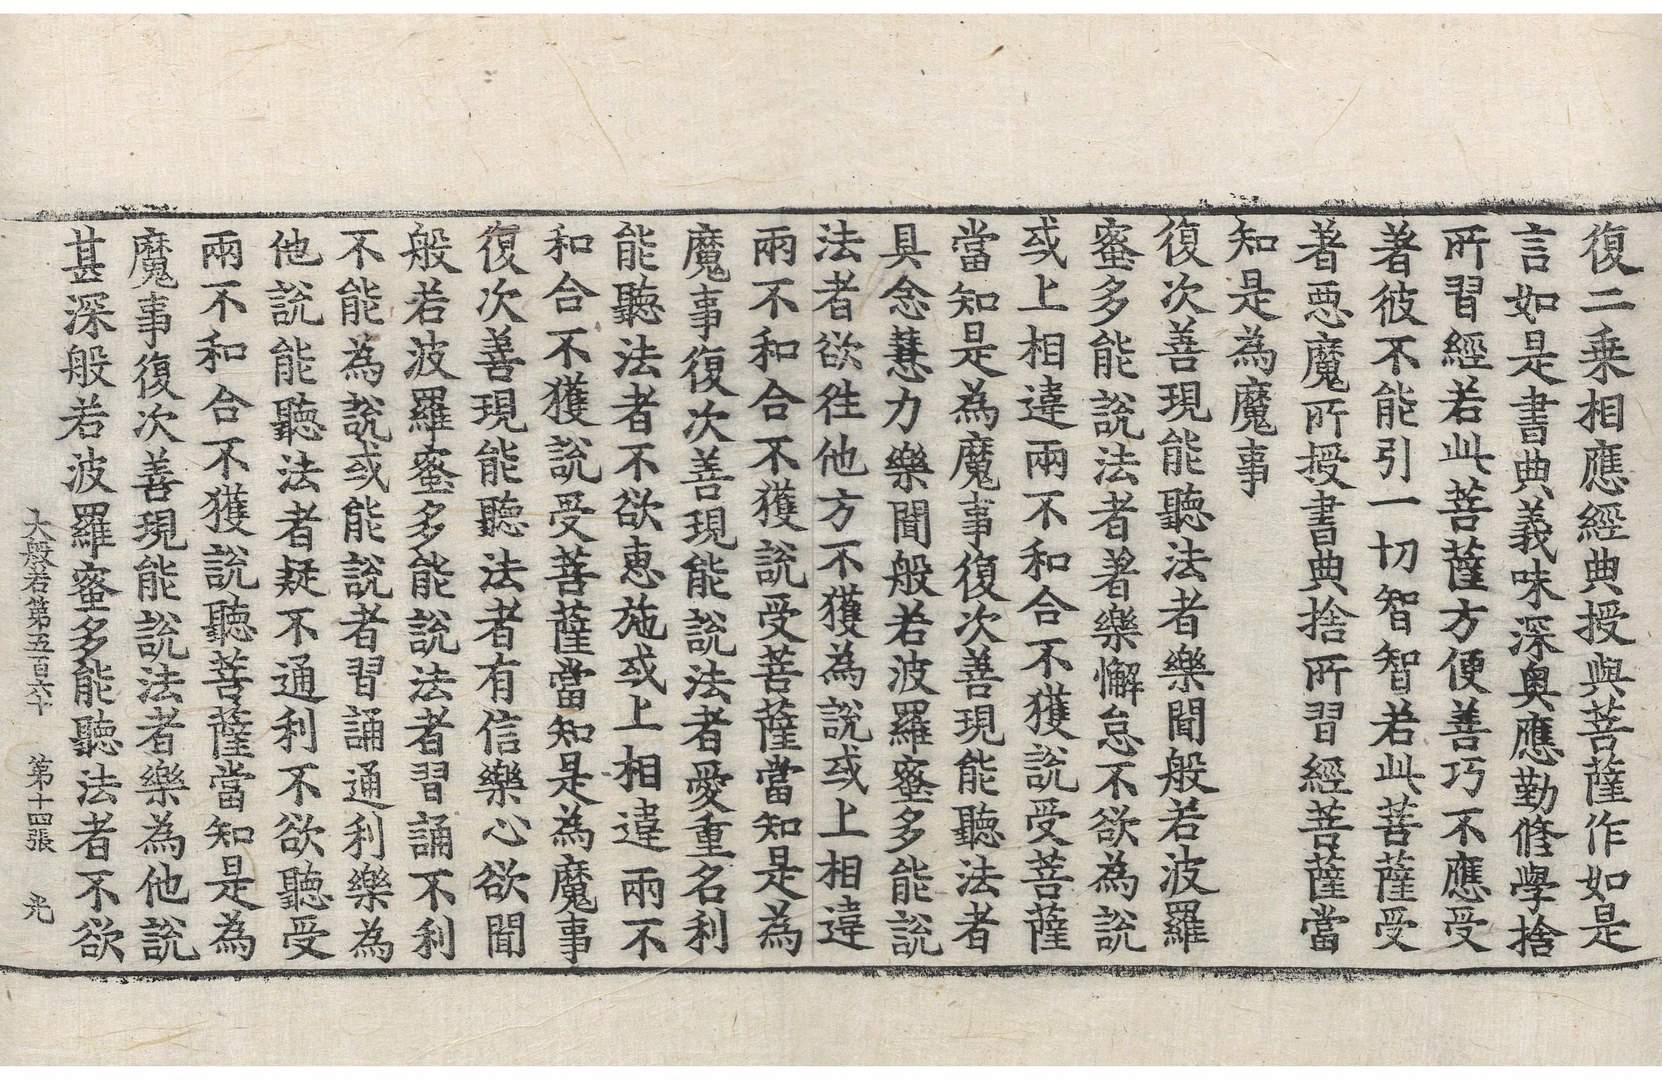 復二乗相應經典授與菩薩作如是
言如是書典義味深奧應勤修學捨
所習經若此菩薩方便善巧不應受
著彼不能引一切智智若此菩薩受
著惡魔所授書典捨所習經菩薩當
知是為魔事
復次善現能聽法者樂聞般若波羅
蜜多能說法者著樂懈怠不欲為說
或上相違兩不和合不獲說受菩薩
當知是為魔事復次善現能聽法者
具念慧力樂聞般若波羅蜜多能說
法者欲往他方不獲為說或上相違
兩不和合不獲說受菩薩當知是為
魔事復次善現能說法者愛重名利
能聽法者不欲惠施或上相違兩不
和合不獲說受菩薩當知是為魔事
復次善現能聽法者有信樂心欲聞
般若波羅蜜多能說法者習誦不利
不能為說或能說者習誦通利樂為
他說能聽法者疑不通利不欲聽受
兩不和合不獲說聽菩薩當知是為
魔事復次善現能說法者樂為他說
甚深般若波羅蜜多能聽法者不欲
大般若第五百六十 第十四張 光